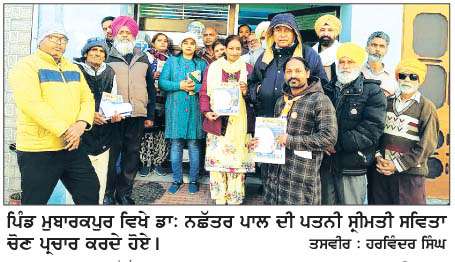 ਪਿੰਡ ਮੁਬਾਰਕਪੁਰ ਵਿਖੇ ਡਾ: ਨਛੱਤਰ ਪਾਲ ਦੀ ਪਤਨੀ ਸ੍ਰੀਮਤੀ ਸਵਿਤਾ
ਚੋਣ ਪ੍ਰਚਾਰ ਕਰਦੇ ਹੋਏ। ਤਸਵੀਰ : ਹਰਵਿੰਦਰ ਸਿੰਘ